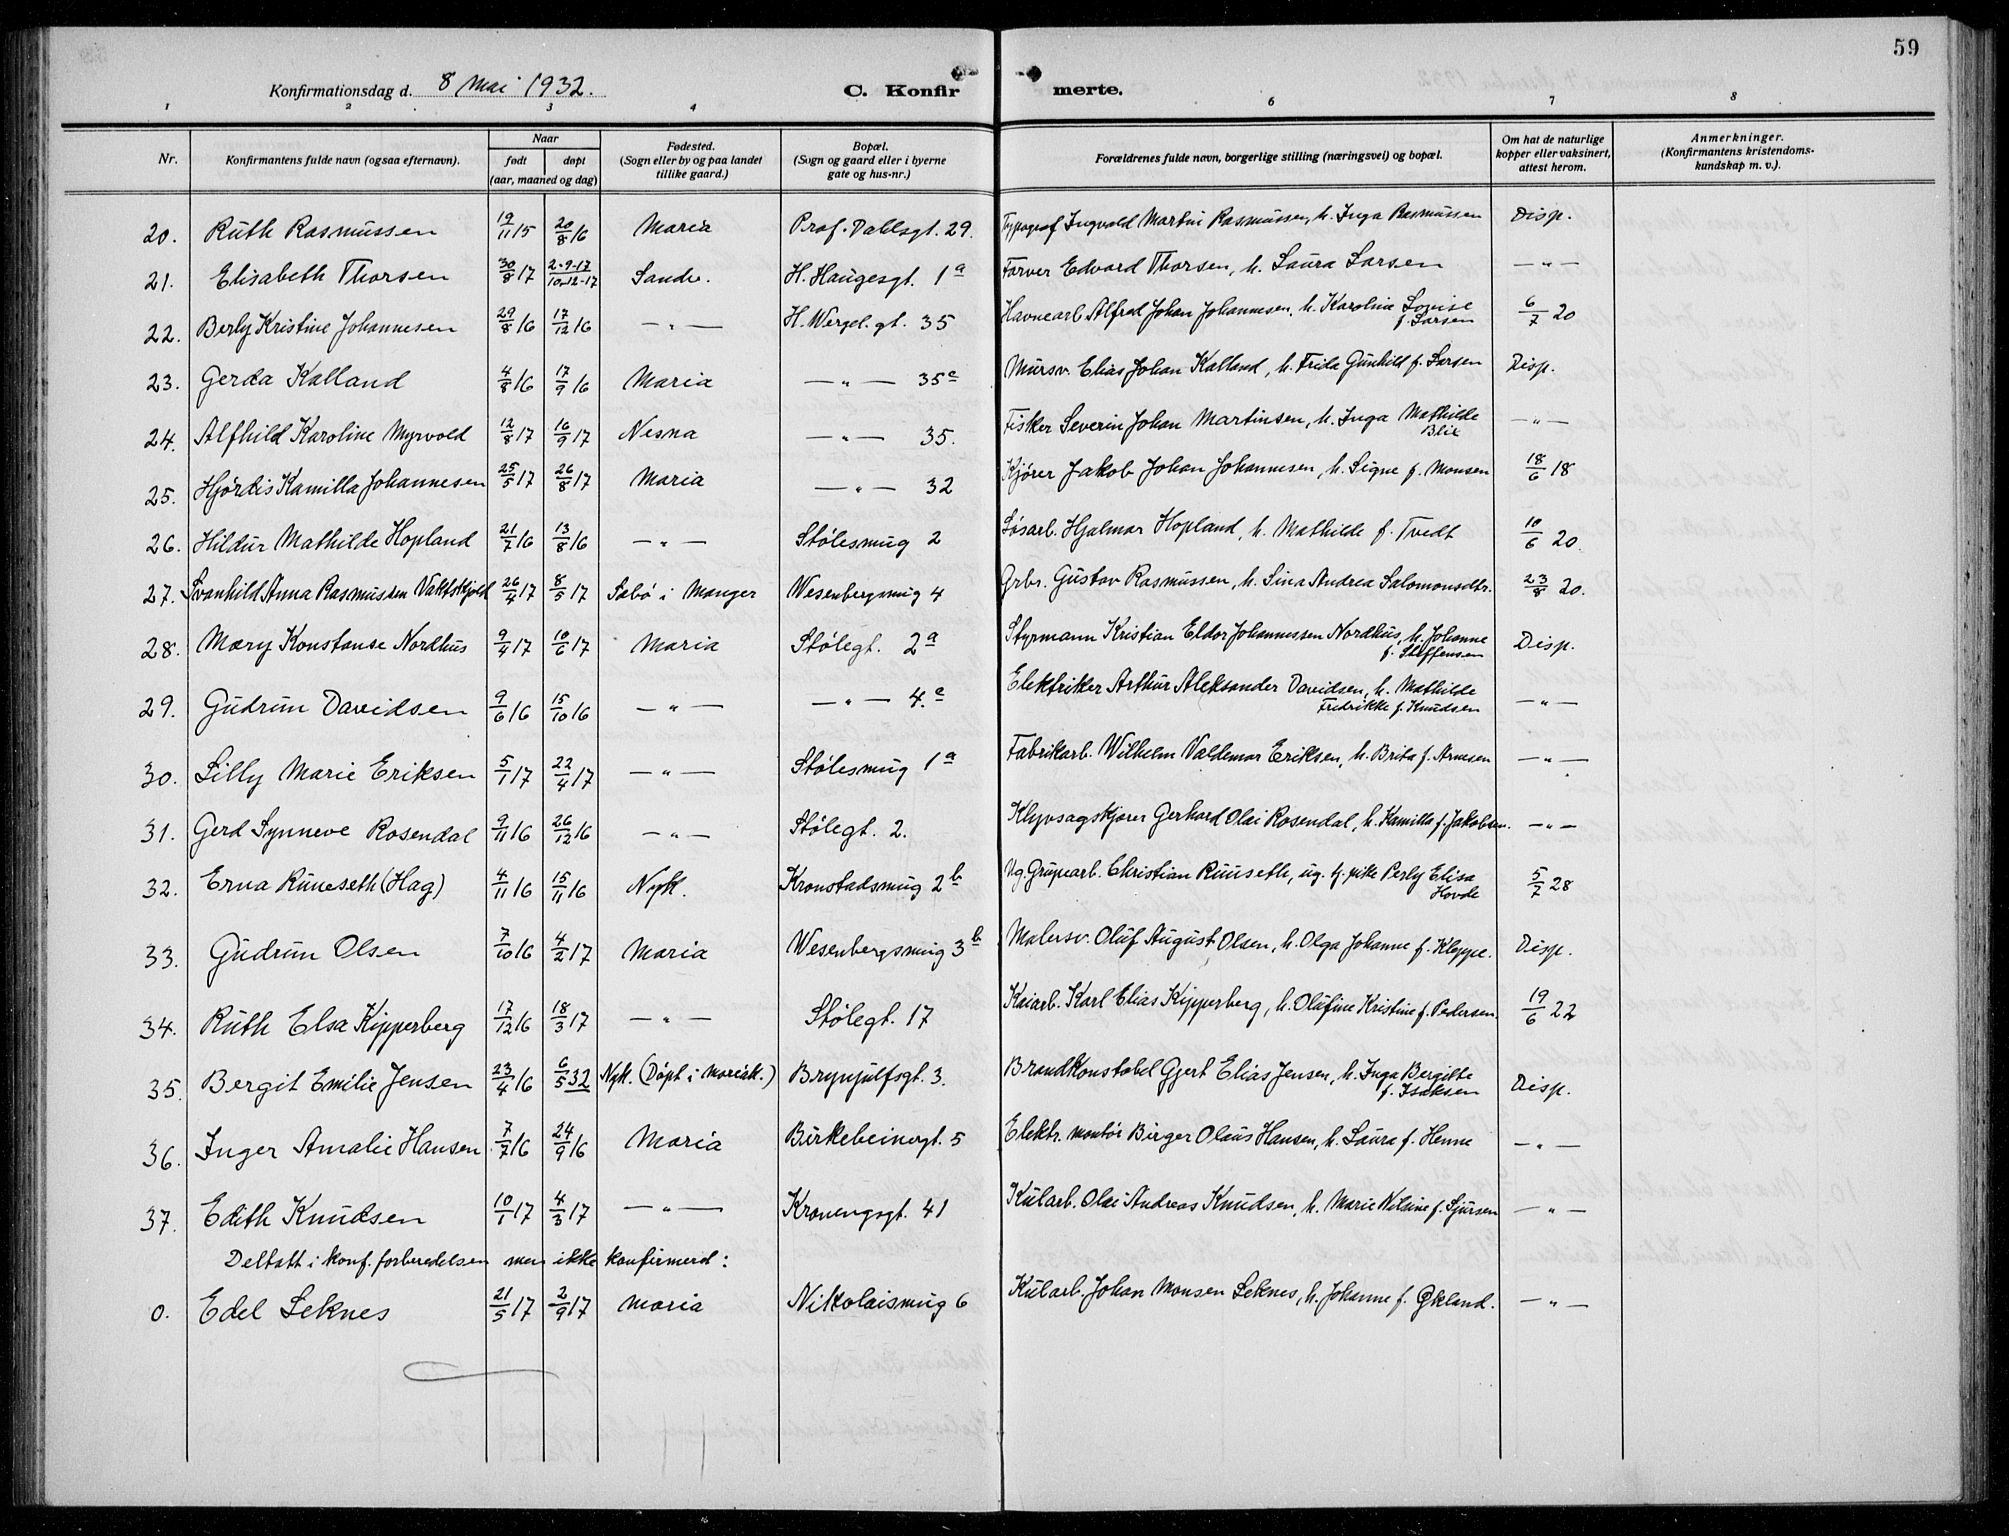 59
Konfirmationsdag d. 8 Mai 1932. C. Konfirmerte.
1 2 3 4 6 7 8
Nr. Konfirmantens fulde navn (ogsaa efternavn). Naar født døpt (aar, maaned og dag) Fødested. (Sogn eller by og paa landet tillike gaard.) Bopæl. (Sogn og gaard eller i byerne gate og hus-nr.) Forældrenes fulde navn, borgerlige stilling (næringsvei) og bopæl. Om hat de naturlige kopper eller vaksinert, attest herom. Anmerkninger. (Konfirmantens kristendomskundskap m. v.).
20. Ruth Rasmussen 19/11 15 20/8 16 Maria Prof. Dahlsgt. 29. Typograf Ingvald Martin Rasmussen, h. Inga Rasmussen Disp.
21. Elisabeth Thorsen 30/8 17 2-9-17 10-12-17 Sandv. H. Haugesgt. 1a Farver Edvard Thorsen, h. Laura Larsen — " —
22. Berly Kristine Johannesen 29/8 16 17/12 16 — " — H. Wergel. gt. 35 Havnearb. Alfred Johan Johannesen, h. Karoline Lovise f. Larsen 6/7 20
23. Gerda Kalland 4/8 16 17/9 16 Maria — " — 35c Mursv. Elias Johan Kalland, h. Frida Gunhild f. Larsen Disp.
24. Alfhild Karoline Myrvold 12/8 17 16/9 17 Nesna — " — 35. Fisker Severin Johan Martinsen, h. Inga Mathilde Blix — " —
25. Hjørdis Kamilla Johannesen 25/5 17 26/8 17 Maria — " — 32 Kjører Jakob Johan Johannesen, h. Signe f. Monsen 18/6 18
26. Hildur Mathilde Hopland 21/7 16 13/8 16 — " — Stølesmug 2 Løsarb. Hjalmar Hopland, h. Mathilde f. Tvedt 10/6 20.
27. Svanhild Anna Rasmussen Vaktskjold 26/4 17 8/5 17 Sæbø i Manger Wesenbergsmug 4 Grbr. Gustav Rasmussen, h. Sina Andrea Salomonsdtr. 23/8 20.
28. Mary Konstanse Nordhus 9/4 17 10/6 17 Maria Stølegt. 2a Styrmann Kristian Eldor Johannessen Nordhus, h. Johanne f. Steffensen Disp.
29. Gudrun Davidsen 9/6 16 15/10 16 — " — — " — 4.c Elektriker Arthur Aleksander Davidsen, h. Mathilde Fredrikke f. Knudsen — " —
30. Lilly Marie Eriksen 5/1 17 22/4 17 — " — Stølesmug 1a Fabrikarb. Wilhelm Valdemar Eriksen, h. Brita f. Arnesen — " —
31. Gerd Synneve Rosendal 9/11 16 26/12 16 — " — Stølegt. 2. Klyvsagskjører Gerhard Olai Rosendal, h. Kamilla f. Jakobsen. — " —
32. Erna Runeseth (Hag) 4/11 16 15/11 16 Nyk. Kronstadsmug 2b Ug. Grupearb. Christian Runseth, ug. tj. pike Perly Elisa Hovde 5/7 28
33. Gudrun Olsen 7/10 16 4/2 17 Maria Wesenbergsmug 3b Malersv. Oluf August Olsen, h. Olga Johanne f. Kleppe. Disp.
34. Ruth Elsa Kipperberg 17/12 16 18/3 17 — " — Stølegt. 17 Kaiarb. Karl Elias Kipperberg, h. Olufine Kristine f. Pedersen. 19/6 22
35. Bergit Emilie Jensen 23/4 16 6/5 32 Nyk. (Døpt i Mariak.) Brynjulfsgt. 3. Brandkonstabel Gjert Elias Jensen, h. Inga Bergitte f. Isaksen Disp.
36. Inger Amalie Hansen 7/7 16 24/9 16 Maria Birkebeinergt. 5 Elektr. montør Birger Olaus Hansen, h. Laura f. Henne — " —
37. Edith Knudsen 10/1 17 4/3 17 — " — Krovengsgt. 41 Kularb. Olai Andreas Knudsen, h. Marie Nilsine f. Sjursen — " —
Deltatt i konf. forberedelsen men ikke konfirmerd:
0. Edel Seknes 21/5 17 2/9 17 Maria Nikolaismug 6 Kularb. Johan Monsen Seknes, h. Johanne f. Økland. — " —